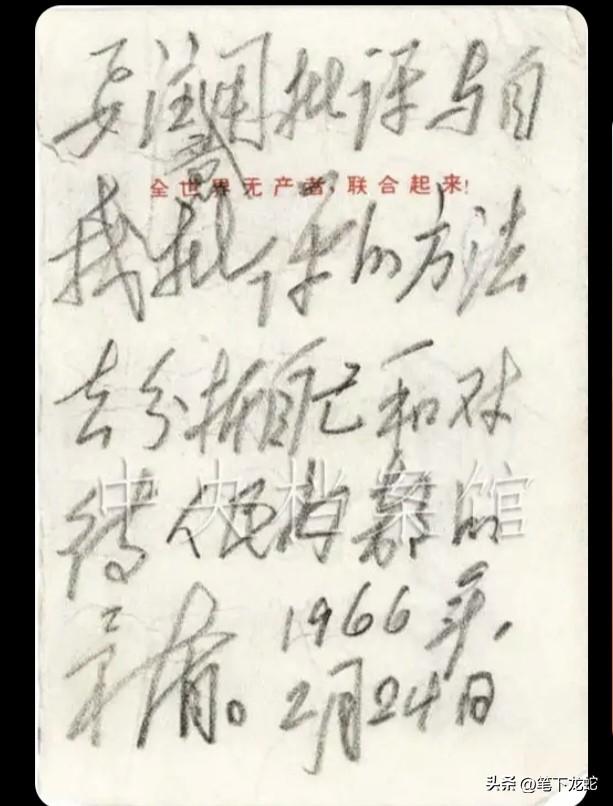 要注意用批评与自
全世界无产者，联合起来！
我批评的方法
去分析自己和对
待人民内部的
中央档案馆
矛盾。1966年，
2月24日
头条 @笔下龙蛇